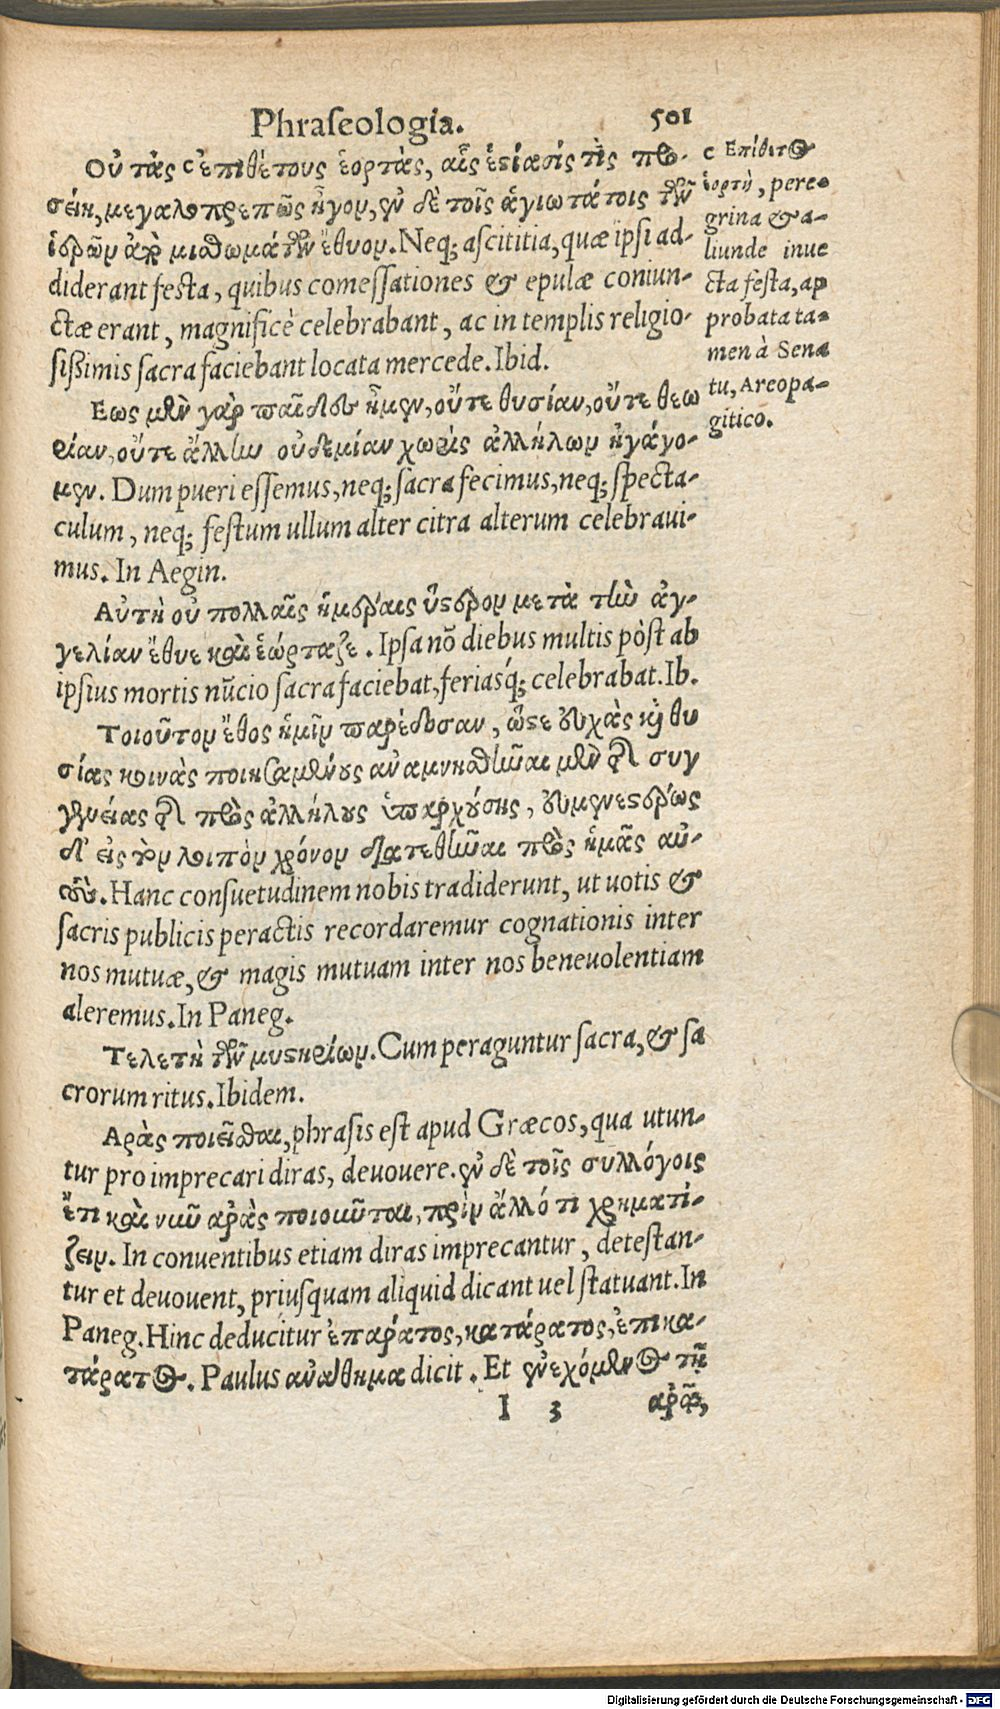 Phraseologia. 501
Οὐ τὰς c ἐπιθέτους ἑορτὰς, αἷς ἑστίασίς τις προ-
σείη, μεγαλοπρεπῶς ἦγον, ἐν δὲ τοῖς ἁγιωτάτοις τῶν
ἱερῶν ἀπὸ μισθωμάτων ἔθυον. Neq; ascititia, quæ ipsi ad-
diderant festa, quibus comessationes & epulæ coniun-
ctæ erant, magnificè celebrabant, ac in templis religio-
sißimis sacra faciebant locata mercede. Ibid.
Εως μὲν γὰρ παῖδες ἦμεν, οὔτε θυσίαν, οὔτε θεω
ρίαν, οὔτε ἄλλην οὐδεμίαν χωρὶς ἀλλήλων ἠγάγο-
μεν. Dum pueri essemus, neq; sacra fecimus, neq; specta-
culum, neq; festum ullum alter citra alterum celebraui-
mus. In Aegin.
Αὐτὴ οὐ πολλαῖς ἡμέραις ὕστερον μετὰ τὴν ἀγ-
γελίαν ἔθυε καὶ ἑώρταζε. Ipsa nō diebus multis pòst ab
ipsius mortis nũcio sacra faciebat, feriasq́; celebrabat. Ib.
Τοιοῦτον ἔθος ἡμῖν παρέδοσαν, ὥστε εὐχὰς κỳ θυ
σίας κοινὰς ποιησαμένους ἀναμνησθῆναι μὲν τῆς συγ
γενείας τῆς πρὸς ἀλλήλους ὑπαρχούσης, εὐμενεστέρως
δ' εἰς τὸν λοιπὸν χρόνον διατεθῆναι πρὸς ἡμᾶς αὐ-
τούς. Hanc consuetudinem nobis tradiderunt, ut uotis &
sacris publicis peractis recordaremur cognationis inter
nos mutuæ, & magis mutuam inter nos beneuolentiam
aleremus. In Paneg.
Τελετὴ τῶν μυστηρίων. Cum peraguntur sacra, & sa
crorum ritus. Ibidem.
Αρὰς ποιεῖσθαι, phrasis est apud Græcos, qua utun-
tur pro imprecari diras, deuouere. ἐν δὲ τοῖς συλλόγοις
ἔτι καὶ νῦν ἀρὰς ποιοῦνται, πρὶν ἄλλό τι χρηματί-
ζειν. In conuentibus etiam diras imprecantur, detestan-
tur et deuouent, priusquam aliquid dicant uel statuant. In
Paneg. Hinc deducitur ἐπαράτος, κατάρατος, ἐπικα-
τάρατος. Paulus ἀνάθημα dicit. Et ἐνεχόμενος τῇ
I 3 ἀρᾷ,
c Επίθετος
ἑορτὴ, pere-
grina & a-
liunde inue
cta festa, ap
probata ta-
men à Sena
tu, Areopa-
gitico.
Digitalisierung gefördert durch die Deutsche Forschungsgemeinschaft - DFG